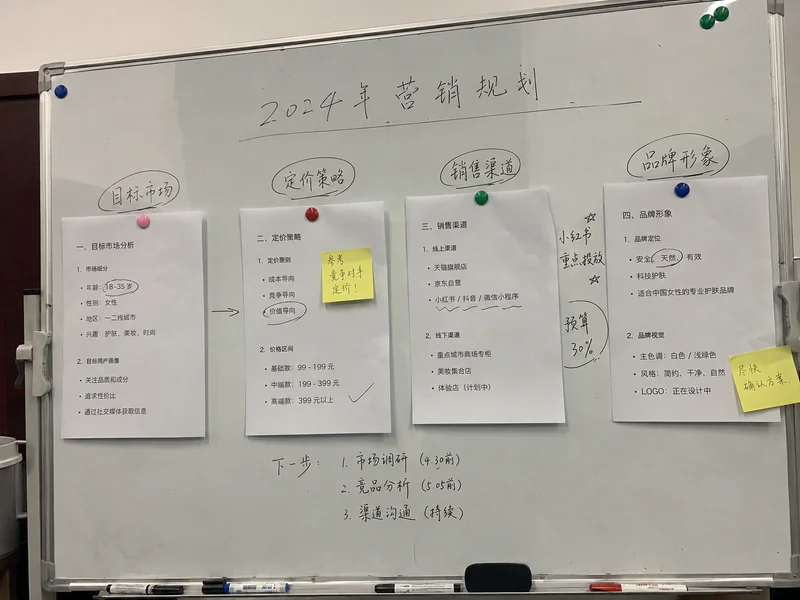 2024年 营销规划
目标市场
一、目标市场分析
1. 市场细分
• 年龄：18-35岁
• 性别：女性
• 地区：一二线城市
• 兴趣：护肤、美妆、时尚
2. 目标用户画像
• 关注品质和成分
• 追求性价比
• 通过社交媒体获取信息
定价策略
二、定价策略
1. 定价策则
• 成本导向
• 竞争导向
• 价值导向
参考
竞争对手
定价！
2. 价格区间
• 基础款：99 - 199 元
• 中端款：199 - 399 元
• 高端款：399 元以上
销售渠道
三、销售渠道
1. 线上渠道
• 天猫旗舰店
• 京东自营
• 小红书 / 抖音 / 微信小程序
2. 线下渠道
• 重点城市商场专柜
• 美妆集合店
• 体验店（计划中）
小红书
重点投放
预算
30%
品牌形象
四、品牌形象
1. 品牌定位
• 安全、天然、有效
• 科技护肤
• 适合中国女性的专业护肤品牌
2. 品牌视觉
• 主色调：白色 / 浅绿色
• 风格：简约、干净、自然
• LOGO：正在设计中
尽快
确认方案
下一步：
1. 市场调研（4.30前）
2. 竞品分析（5.05前）
3. 渠道沟通（持续）